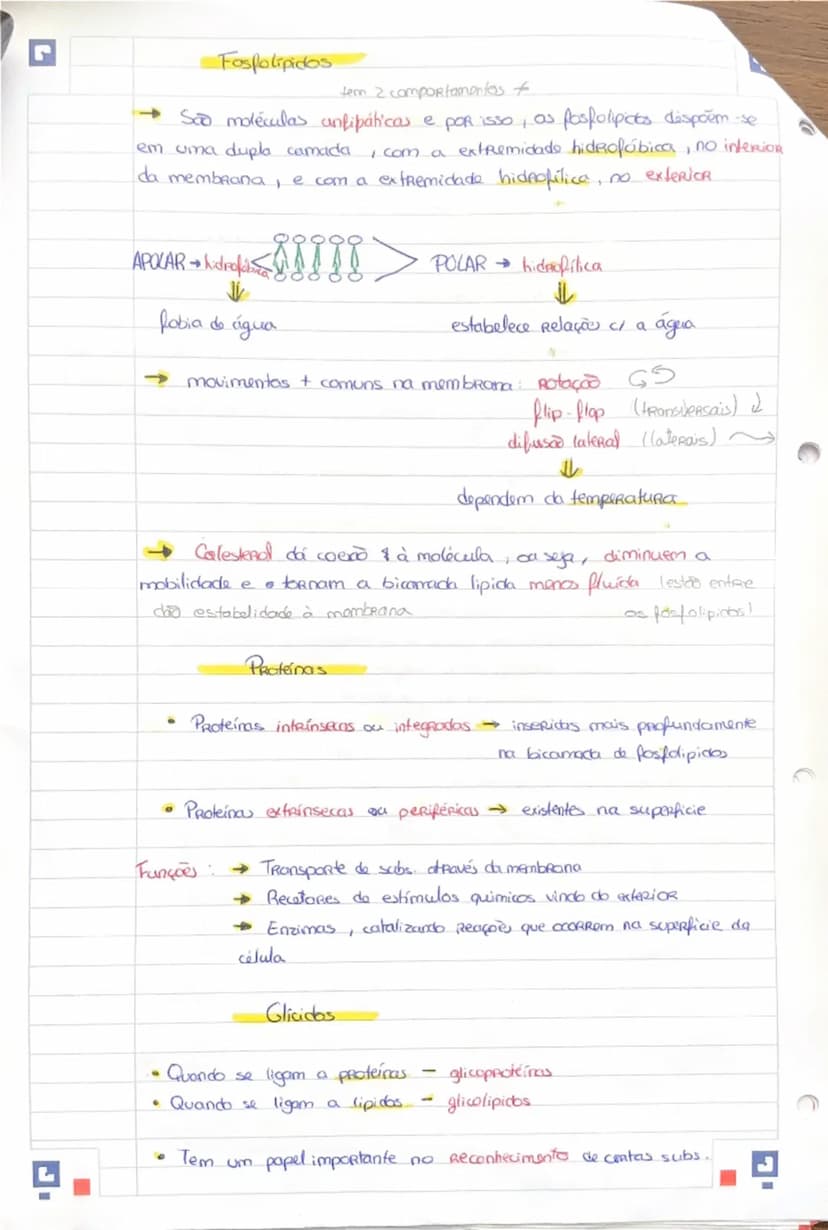 Fosfolípidos
tem 2 comportamentos ≠
→ São moléculas anfipáticas e por isso, os fosfolipidos dispõem-se
em uma dupla camada, com a extremidade hidrofóbica, no interior
da membrana, e com a extremidade hidrofílica, no exterior
APOLAR → hidrofóbica POLAR → hidrofílica
fobia de água estabelece relação c/ a água
→ movimentos + comuns na membrana: Rotação
flip-flop (transversais) ↓
difusão lateral (laterais) →
dependem da temperatura
→ Colesterol dá coesão à molécula, ou seja, diminuem a
mobilidade e tornam a bicamada lipida menos fluída (estão entre
dão estabelidade à membrana os fosfolipidos!
Proteínas
• Proteínas intrínsecas ou integradas → inseridas mais profundamente
na bicamada de fosfolipidos
• Proteínas extrínsecas ou periféricas → existentes na superficie
Funções: → Transporte de subs. através da membrana
→ Recetores de estímulos quimicos vindo do exterior
→ Enzimas, catalizando reações que ocorrem na superficie da
célula
Glícidos
• Quando se ligam a proteínas - glicoproteínas
• Quando se ligam a lipidos - glicolipidos
• Tem um papel importante no reconhecimento de certas subs.